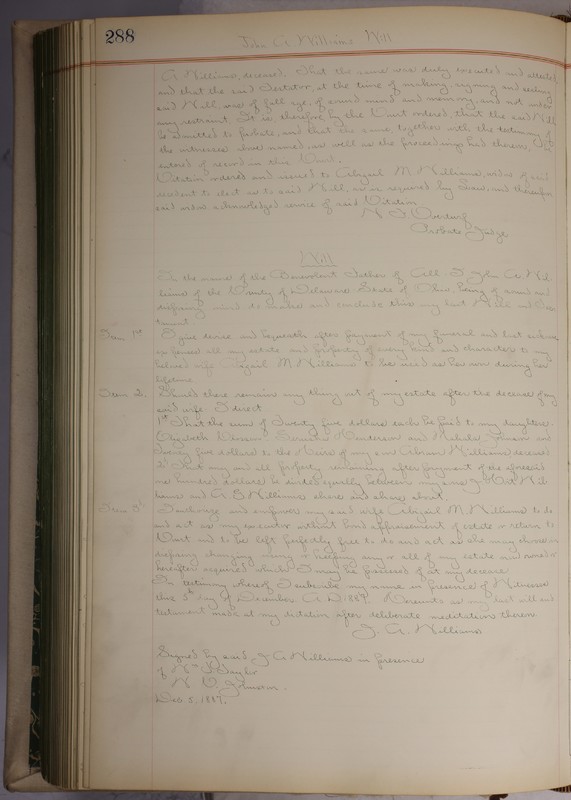 288
John A Williams Will
A Williams, deceased. That the same was duly executed and attested
and that the said Testator, at the time of making, signing and sealing
said Will, was of full age, of sound mind and memory, and not under
any restraint. It is therefore by the Court ordered, that the said Will
be admitted to Probate, and that the same, together with the testimony of
the witnesses above named, as well as the proceedings had therein, be
entered of record in this Court.
Citation ordered and issued to Abigail M. Williams, widow of said
decedent to elect as to said Will, as is required by Law, and thereupon
said widow acknowledged service of said Citation
N. F. Overturf
Probate Judge
Will
In the name of the Benevolent Father of All I John A. Wil
liams of the County of Delaware State of Ohio being of sound and
disposing mind do make and conclude this my last Will and Tes
tament
Item 1st I give devise and bequeath after payment of my funeral and last sickness
expenses all my estate and property of every kind and character to my
beloved wife Abigail M Williams to be used as her own during her
lifetime
Item 2. Should there remain any thing out of my estate after the decease of my
said wife I direct
1st That the sum of Twenty five dollars each be paid to my daughters
Elizabeth Henderson and Johnson and
Twenty five dollars to the Heirs of my son Williams deceased
2d That any and all property remaining after payment of the aforesaid
one hundred dollars be divided equally between my sons J Wil
liams and A. S Williams share and share alike.
Item 3d I authorize and empower my said wife Abigail M. Williams to do
and act as my executor without bond appraisement of estate or return to
Court and to be left perfectly free to do and act as she may choose in
disposing changing using or keeping any or all of my estate now owned or
hereafter acquired which I may be possessed of at my decease.
In testimony whereof I subscribe my name in presence of Witnesses
this 5th day of December A. D. 1887. as my last will and
testament made at my dictation after deliberate meditations thereon.
J. A. Williams
Signed by said J A Williams in presence
of Wm Taylor
N. Johnston.
Dec. 5, 1887.